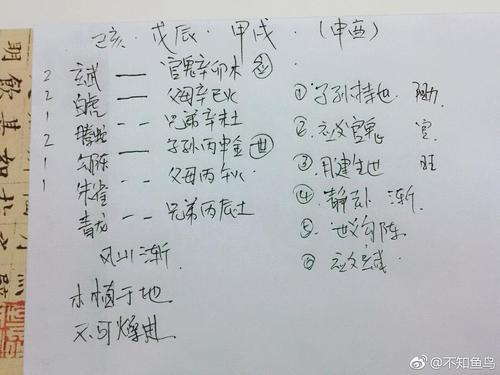 己亥·戊辰·甲戌·(申酉)
2 玄武 — 官鬼辛卯木 应
2 白虎 — 父母辛巳火
1 腾蛇 -- 兄弟辛未土
2 勾陈 — 子孙丙申金 世
1 朱雀 -- 父母丙午火
1 青龙 -- 兄弟丙辰土
风山渐
木植于地
不可燥进
① 子孙持世
② 应爻官鬼 官
③ 月建生世 旺
④ 静卦 渐
⑤ 世爻勾陈
⑥ 应爻玄武
明
@不知鱼鸟